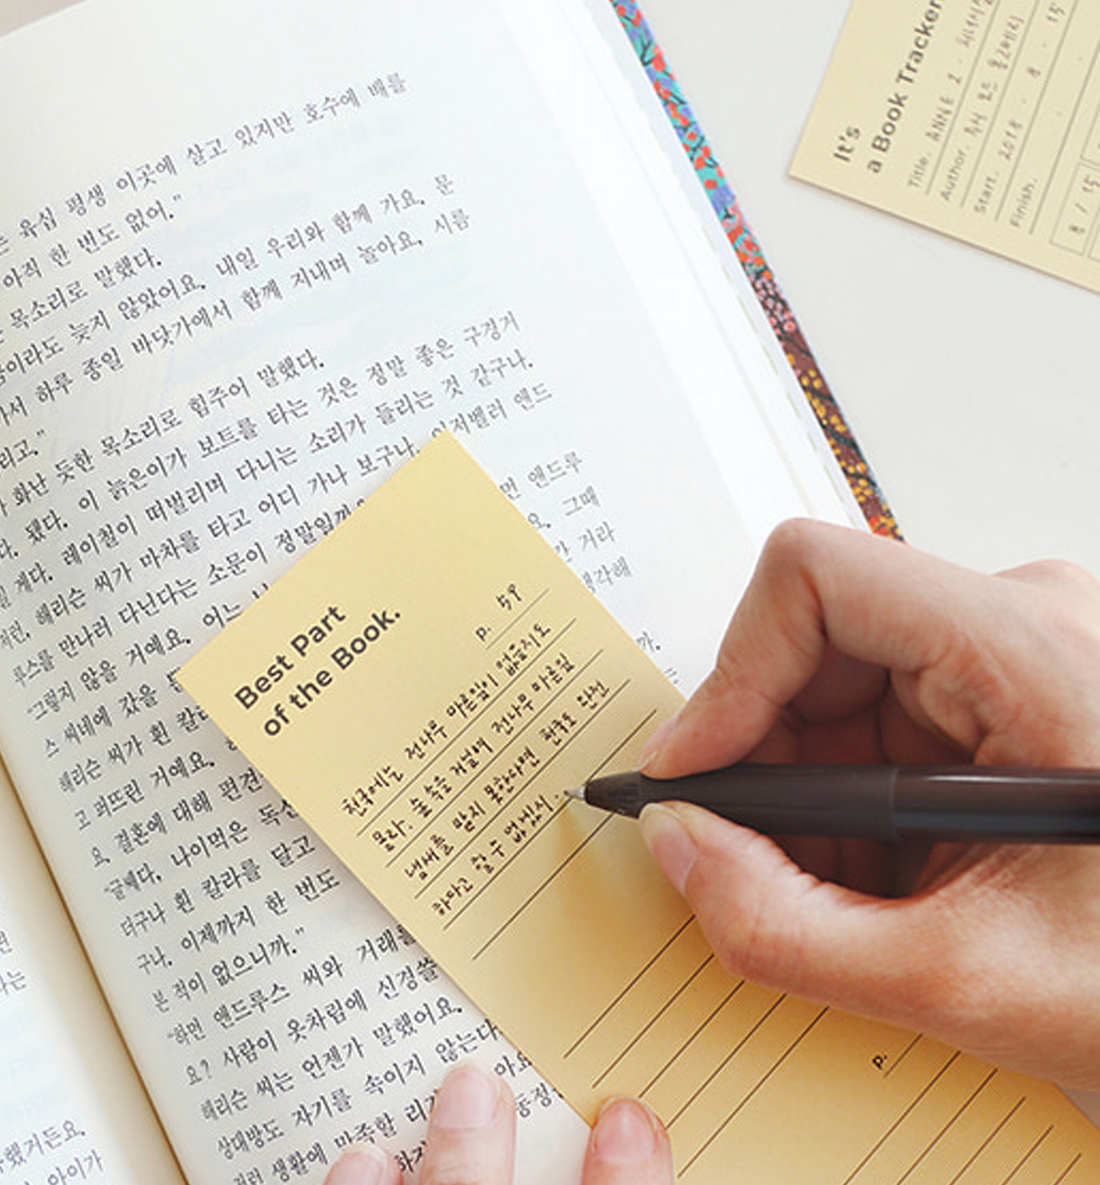 는 육십 평생 이곳에 살고 있지만 호수에 배를
아직 한 번도 없어."
목소리로 말했다.
늦지 않았어요. 내일 우리와 함께 가요. 문
이라도
가서 하루 종일 바닷가에서 함께 지내며 놀아요. 시름
리고."
화난 듯한 목소리로 힘주어 말했다.
됐다. 이 늙은이가 보트를 타는 것은 정말 좋은 구경거
게다. 레이철이 떠벌리며 다니는 소리가 들리는 것 같구나.
해리슨 씨가 마차를 타고 어디 가나 보구나. 이저벨러 앤드
루스를 만나러 다닌다는 소문이 정말일까
면 앤드루
"그렇지 않을 거예요. 어느
요. 그때
스 씨네에 갔을
거라
해리슨 씨가 흰 칼라
생각해
고 퍼뜨린 거예요.
까.
요. 결혼에 대해 편견
"글쎄다. 나이먹은 독신
더구나 흰 칼라를 달고
구나. 이제까지 한 번도
본 적이 없으니까."
"하면 앤드루스 씨와 거래를
요? 사람이 옷차림에 신경쓸
해리슨 씨는 언젠가 말했어요.
상대방도 자기를 속이지 않는다
아요
생활에 만족할 리가
동정
하지
했거든요.
아이가
Best Part
of the Book.
p. 59
천국에는 전나무 마른잎이 없을지도
몰라. 숲속을 거닐때 전나무 마른잎
냄새를 맡지 못한다면 천국도 완전
하다고 할 수 없겠지.
p.
It's
a Book Tracker
Title. ANNE 2.
Author. 루시 모드 몽고메리
Start. 2018 . 8 . 15
Finish.
8 / 15